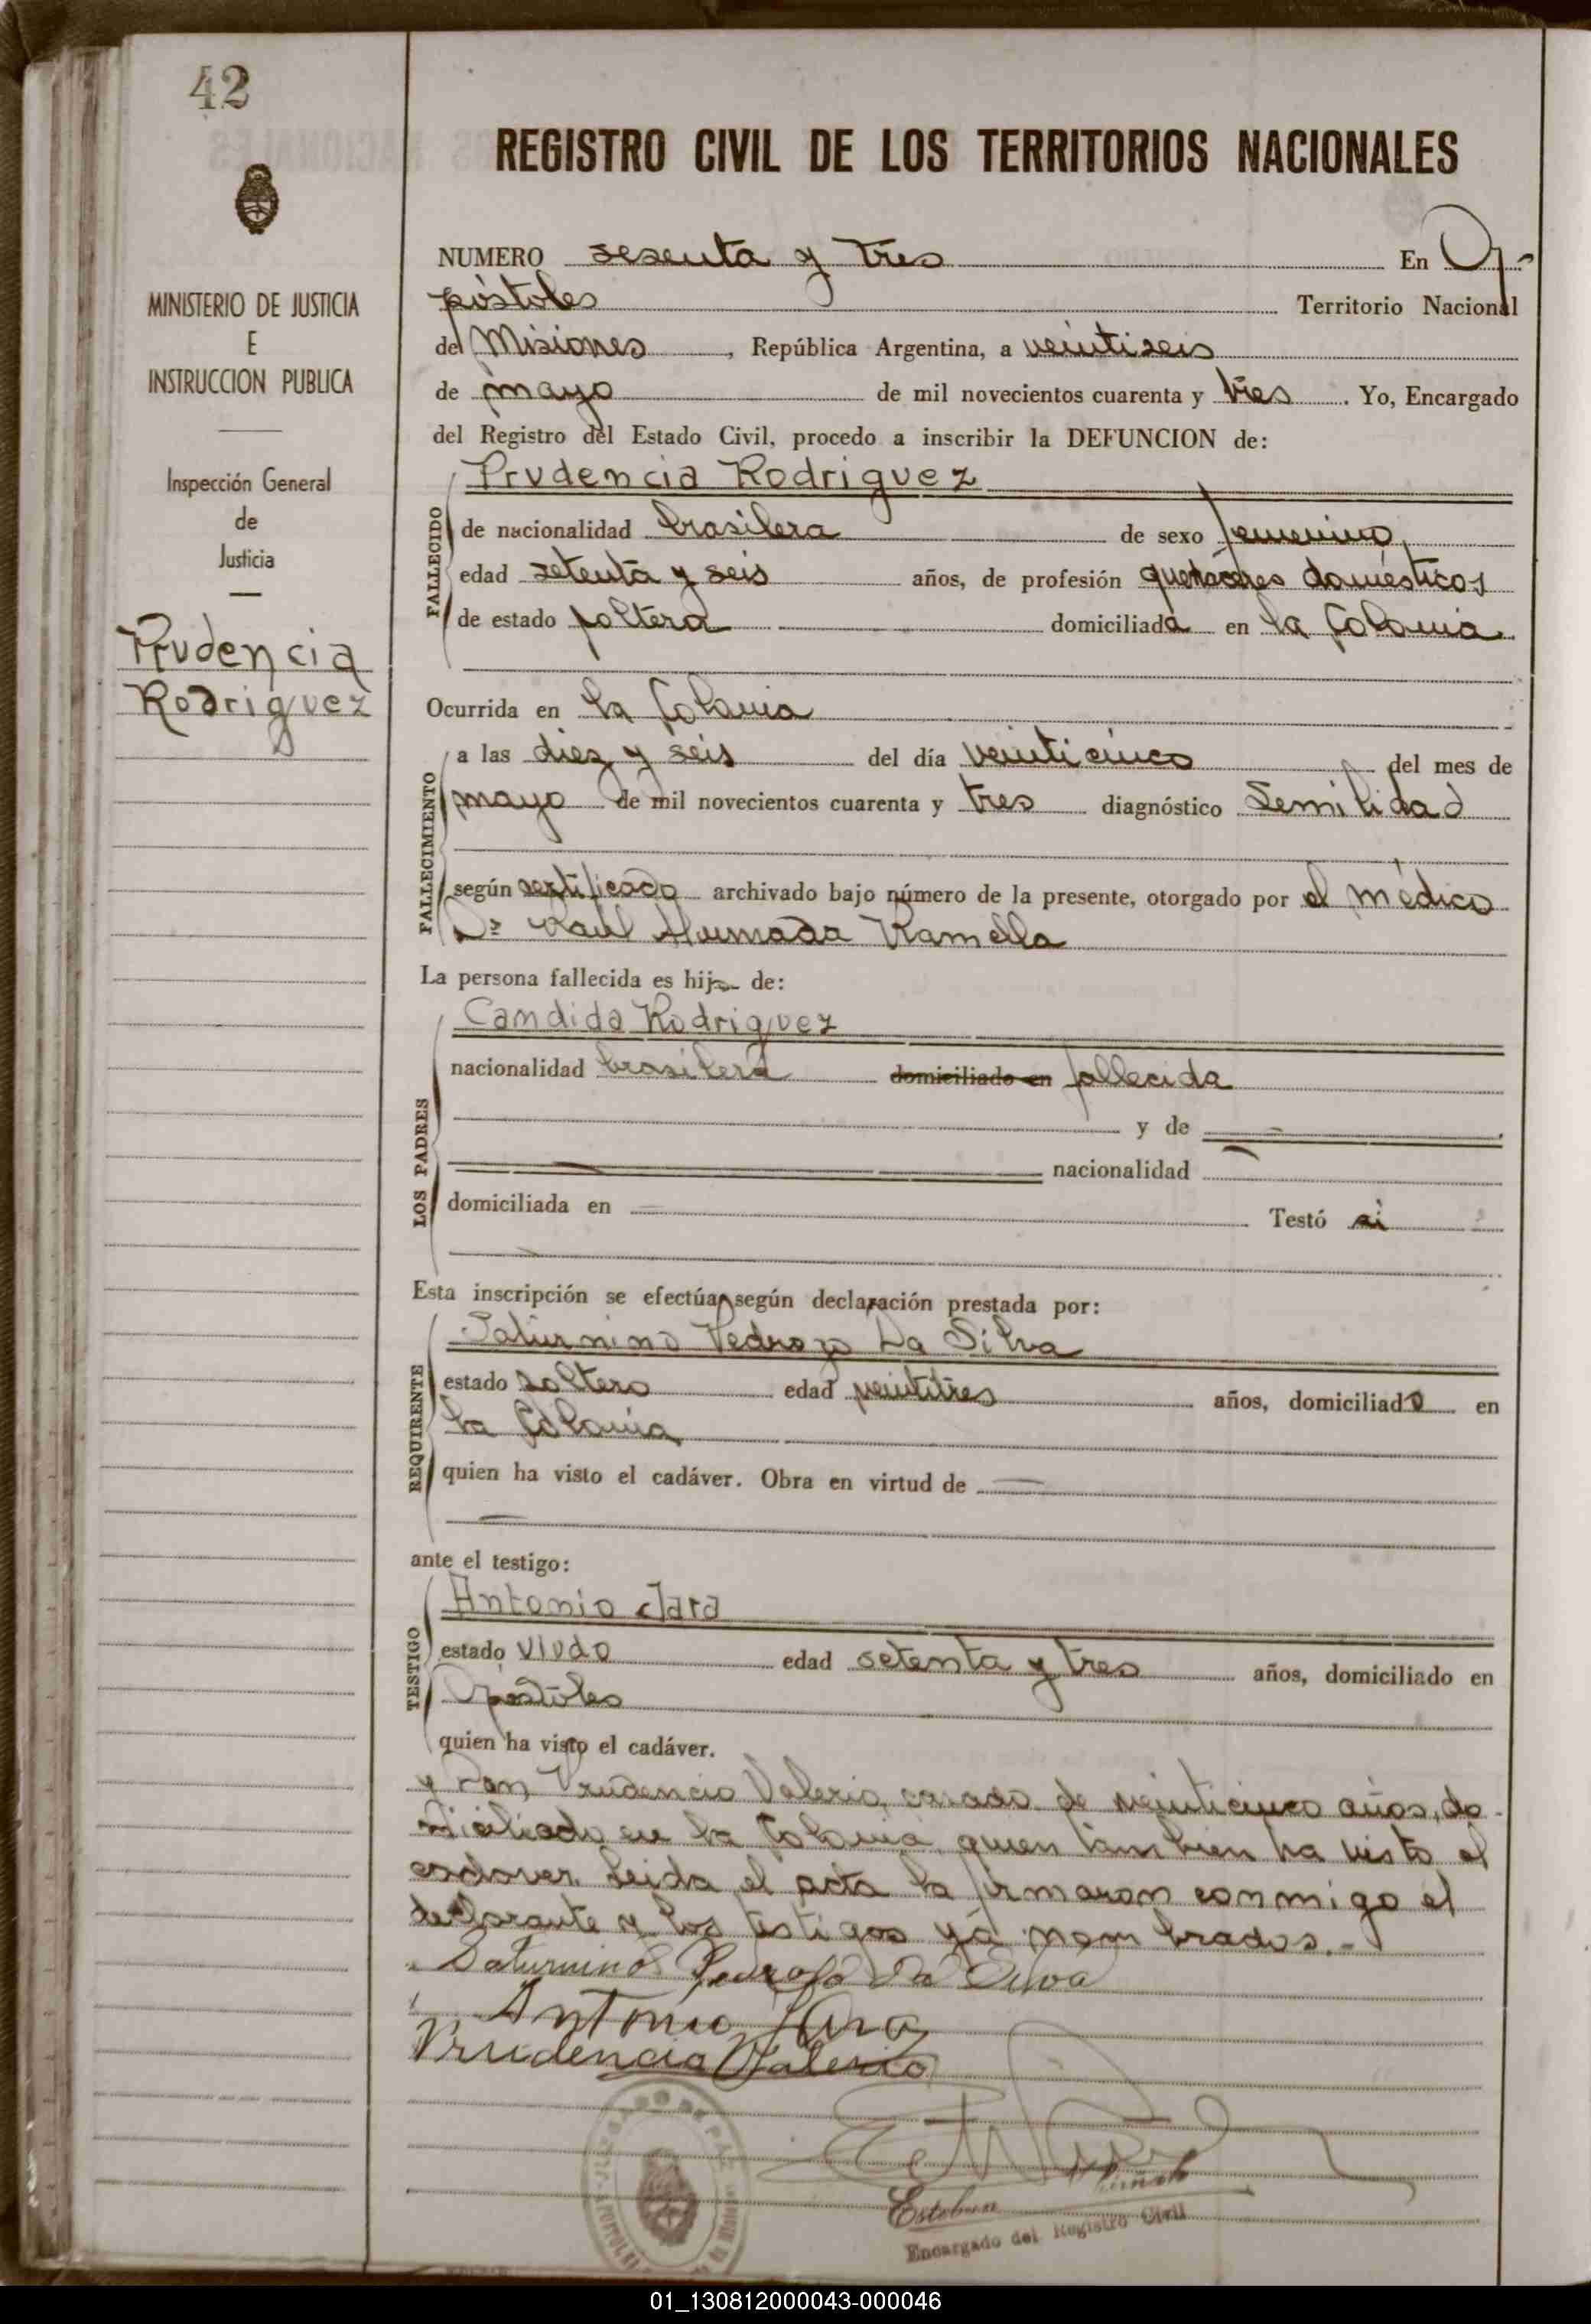 42
REGISTRO CIVIL DE LOS TERRITORIOS NACIONALES
MINISTERIO DE JUSTICIA
E
INSTRUCCION PUBLICA
Inspección General
de
Justicia
Prudencia
Rodriguez
NUMERO sesenta y tres En A-
póstoles Territorio Nacional
de Misiones, República Argentina, a veintiseis
de mayo de mil novecientos cuarenta y tres. Yo, Encargado
del Registro del Estado Civil, procedo a inscribir la DEFUNCION de:
Prudencia Rodriguez
FALLECIDO
de nacionalidad brasilera de sexo femenino
edad setenta y seis años, de profesión quehaceres domésticos
de estado soltera domiciliada en la Colonia
Ocurrida en la Colonia
FALLECIMIENTO
a las diez y seis del día veinticinco del mes de
mayo de mil novecientos cuarenta y tres diagnóstico Semilidad
según sertificado archivado bajo número de la presente, otorgado por el médico
Dr Raúl Ahumada Ramella
La persona fallecida es hija de:
LOS PADRES
Candida Rodriguez
nacionalidad brasilera domiciliado en fallecida
y de
nacionalidad
domiciliada en Testó si
Esta inscripción se efectúa según declaración prestada por:
REQUIRENTE
Saturnino Pedrozo Da Silva
estado soltero edad veintitres años, domiciliado en
la Colonia
quien ha visto el cadáver. Obra en virtud de
ante el testigo:
TESTIGO
Antonio Jara
estado viudo edad setenta y tres años, domiciliado en
Apostoles
quien ha visto el cadáver.
y Don Prudencio Valerio, casado de veinticinco años, do-
miciliado en la Colonia quien tambien ha visto el
cadaver. Leida el acta la firmaron conmigo el
declarante y los testigos yá nombrados.-
Saturnino Pedroso Da Silva
Antonio Jara
Prudencio Valerio
JUZGADO DE PAZ
Esteban
Encargado del Registro Civil
01_130812000043-000046